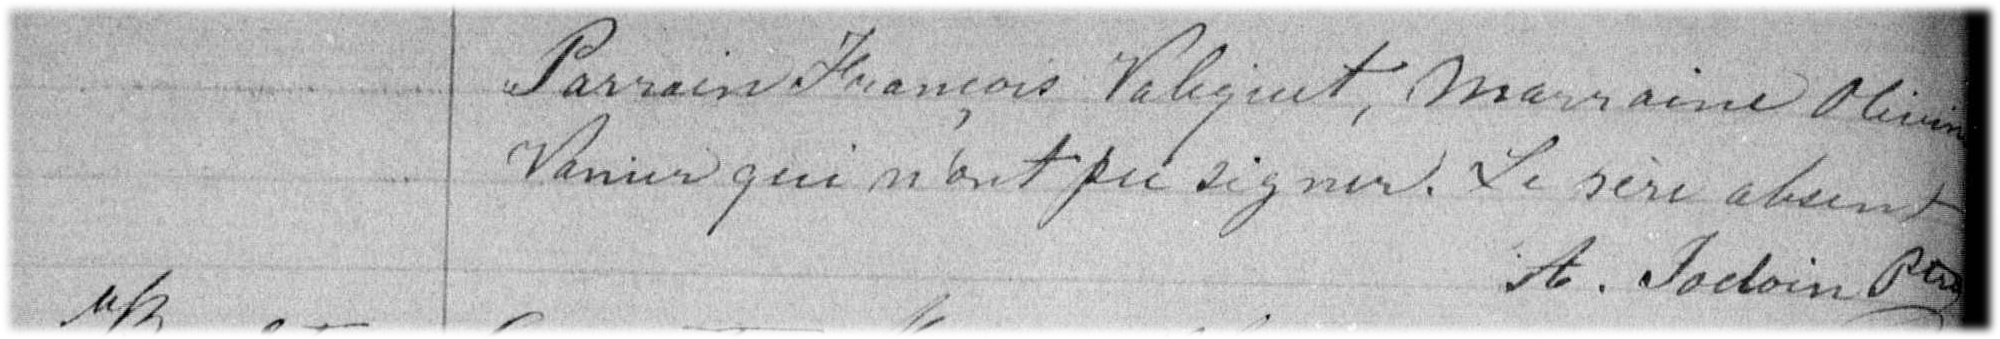 Parrain François Valiquet, Marraine Olivine
Vanier qui n'ont pu signer. Le père absent
A. Jodoin Ptre